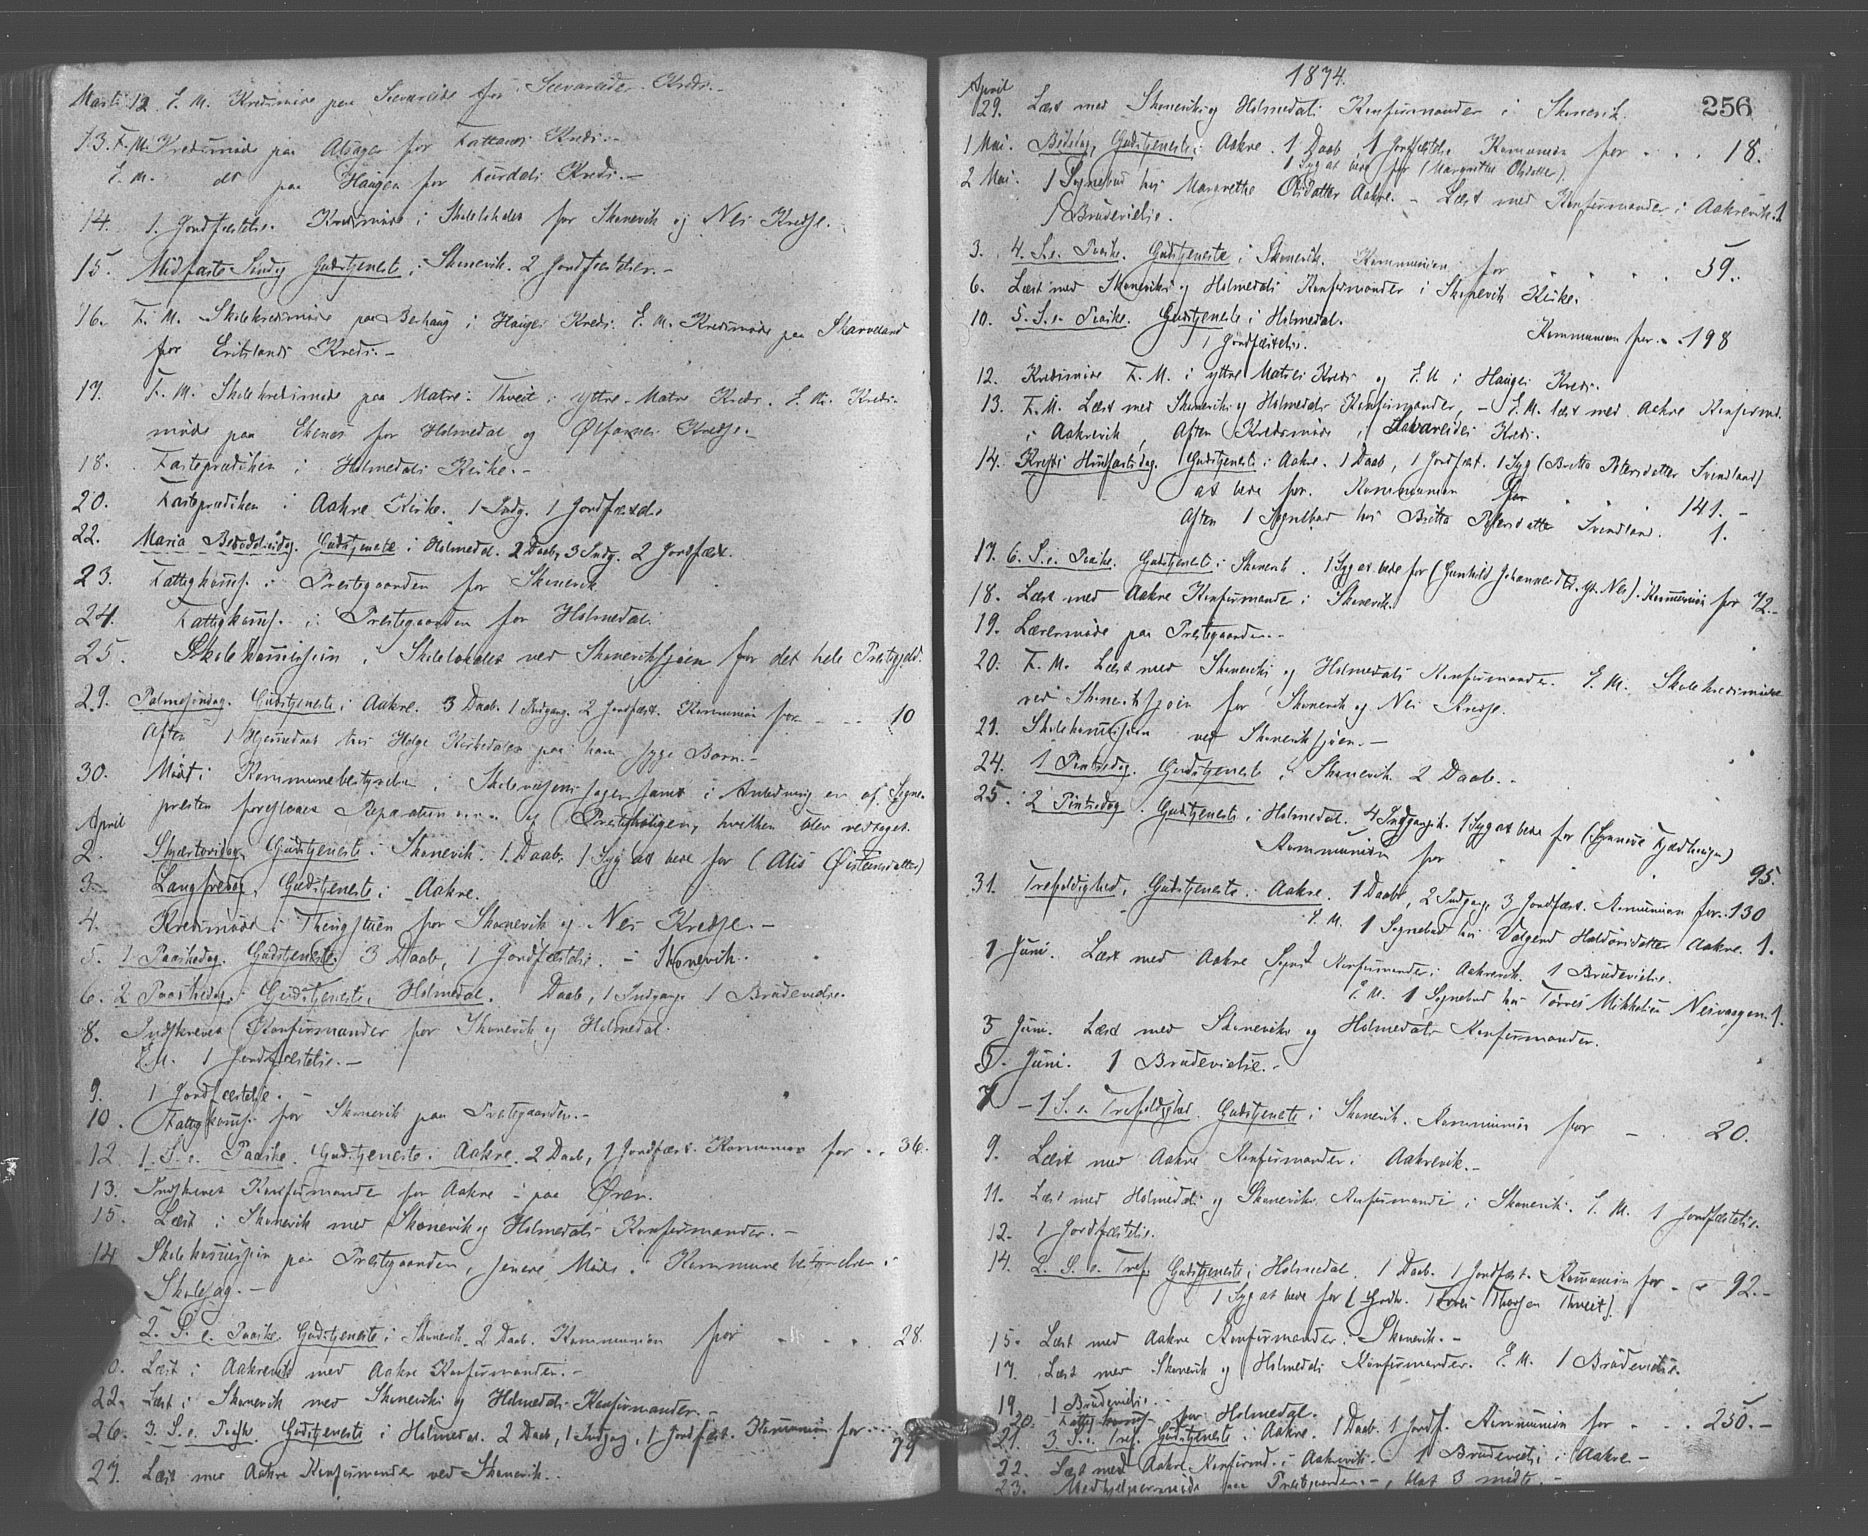 Marts 12. E. M. Kredsmøde paa Sævareide for Sævareide Kreds.-
13. F. M. Kredsmøde paa Alsager for Kreds.-
E. M. do paa Haugen for Kreds.-
14. 1 Jordfæstelse. Kredsmøde i Skolelokalet for Skonevik og Nes Kredse.
15. Midfaste Søndg Gudstjeneste i Skonevik. 2 Jordfæstelser.-
16. F. M. Skolekredsmøde paa Berhaug i Hauges Kreds. E. M. Kredsmøde paa Skarveland
for Eritslands Kreds.-
17. F. M. Skolekredsmøde paa Matre-Thveit i yttre-Matre Kreds. E. M. Kreds-
møde paa Ekenes for Holmedal og Ølfarnes Kredse.-
18. Fasteprædiken i Holmedals Kirke.-
20. Fasteprædiken i Aakre Kirke. 1 Indg. 1 Jordfæstelse
22. Maria Bebudelsesdag. Gudstjeneste i Holmedal. 2 Daab, 3 Indg. 2 Jordfæst.
23. Fattigkomms. i Prestegaarden for Skonevik
24. Fattigkomms. i Prestegaarden for Holmedal.
25. Skolekommission i Skolelokalet ved Skoneviksjøen for det hele Præstegjeld.
29. Palmesøndag. Gudstjeneste i Aakre. 3 Daab. 1 Indgang. 2 Jordfæst. Kommunion for - - - 10
Aften 1 Hjemmedaab hos Helge Kirkedalen paa hans syge Barn.-
30. Mødt i Kommunebestyrelsen i Skolevæsens sager samt i Anledning en af Sogne-
presten foreslaaet Reparation af Presteboligen, hvilken blev vedtaget.
April
2. Skjærtorsdag. Gudstjeneste i Skonevik. 1 Daab, 1 Syg at bede for (Alis Øisteinsdatter)
3. Langfredag. Gudstjeneste i Aakre.
4. Kredsmøde i Thingstuen for Skonevik og Nes Kredse.-
5. 1 Paaskedag. Gudstjeneste. 3 Daab, 1 Jordfæstelse. - Skonevik.
6. 2 Paaskedag. Gudstjeneste i Holmedal. Daab, 1 Indgang 1 Brudevielse.
8. Indskreven Konfirmander for Skonevik og Holmedal.
E. M. 1 Jordfæstelse.-
9. 1 Jordfæstelse. -
10. Fattigkomms. for Skonevik paa Prestegaarden.-
12. 1. S. e. Paaske. Gudstjeneste i Aakre. 2 Daab, 1 Jordfæst. Kommunion for . . 36.
13. Indskrevet Konfirmander for Aakre - paa Øren.
15. Læst i Skonevik med Skonevik og Holmedals Konfirmander. -
14 Skolekommission paa Prestegaarden, senere Møde i Kommunebestyrelsen i
Skolesag. -
2. S. e. Paaske. Gudstjeneste i Skonevik. 2 Daab. Kommunion for . . . . 28.
0. Læst i Aakrevik med Aakre Konfirmander.-
22. Læst i Skonevik med Skoneviks og Holmedals Konfirmander.-
26. 3. S. e. Paaske. Gudstjeneste i Holmedal. 2 Daab, 1 Indgang, 1 Jordfæst. Kommunion for .. 79
27. Læst med Aakre Konfirmander ved Skonevik.-
1874.
256
April
29. Læst med Skoneviks og Holmedals Konfirmander i Skonevik.
1 Mai. Bededag, Gudstjeneste i Aakre. 1 Daab, 1 Jordfæstelse Kommunion for . . . 18.
1 Syg at bede for (Margrethe Olsdatter).
2 Mai. 1 Sognebud hos Margrethe Olsdatter Aakre. - Læst med Konfirmander i Aakrevik. 1
1 Brudevielse.
3. 4. S. e. Paaske. Gudstjeneste i Skonevik. Kommunion for . . . . . 59.
6. Læst med Skoneviks og Holmedals Konfirmander i Skonevik Kirke.
10. 5. S. e. Paaske. Gudstjeneste i Holmedal. Kommunion for . . 198
1 Jordfæstelse.
12. Kredsmøde F. M. i yttre Matres Kreds og E. M i Hauges Kreds.
13. F. M. Læst med Skoneviks og Holmedals Konfirmander, - E. M. læst med Aakre Konfirmd.
i Aakrevik, Aften Kredsmøde i Sævareides Kreds.
14. Kristi Himlfartsdag. Gudstjeneste i Aakre. 1 Daab, 1 Jordfæst. 1 Syg (Britta Petersdatter Svendland)
at bede for. Kommunion for 141. -
Aften 1 Sognebud hos Britta Petersdatter Svindland. 1.
17. 6. S. e. Paaske. Gudstjeneste i Skonevik. 1 Syg at bede for (Gunhild Johannesdtr. Nes). Kommunion for 72.-
18. Læst med Aakre Konfirmander i Skonevik.
19. Lærermøde paa Prestegaarden.-
20. F. M. Læst med Skoneviks og Holmedals Konfirmander. E. M. Skolekredsmøde
ved Skoneviksjøen for Skonevik og Nes Kredse.
21. Skolekommission ved Skoneviksjøen.-
24. 1 Pintsedag. Gudstjeneste i Skonevik 2 Daab.-
25. 2 Pintsedag. Gudstjeneste i Holmedal. 4 Indgangsk. 1 Syg at bede for
Kommunion for 95.
31. Trefoldighed, Gudstjeneste i Aakre. 1 Daab, 2 Indgang, 3 Jordfæst. Kommunion for . 130
E. M. 1 Sognebud hos Valgerd Haldorsdatter Aakre. 1.
1 Juni. Læst med Aakre Sogns Konfirmander i Aakrevik. 1 Brudevielse.
E. M. 1 Sognebud hos Tørres Mikkelsen Nesvaagen. 1.
3 Juni. Læst med Skoneviks og Holmedals Konfirmander.
5. Juni. 1 Brudevielse.-
7 - 1 S. e. Trefoldighed. Gudstjeneste i Skonevik. Kommunion for - . 20.
9. Læst med Aakre Konfirmander i Aakrevik.-
11. Læst med Holmedals og Skoneviks Konfirmander i Skonevik. E. M. 1 Jordfæstelse.
12. 1 Jordfæstelse.
14. 2. S. e. Tref. Gudstjeneste i Holmedal. 1 Daab. 1 Jordfæst. Kommunion for . . 92.-
1 Syg at bede for ( Tørres Thorsen Thveit).
15. Læst med Aakre Konfirmander i Skonevik.-
17. Læst med Skonevik og Holmedals Konfirmander. E. M. 1 Brudevielse.
19. 1 Brudevielse.-
20. Fattigkomms. for Holmedal.
21. 3 S. e. Tref. Gudstjeneste i Aakre. 1 Daab. 1 Jordf. Kommunion for . . . 250.-
22. Læst med Aakre Konfirmd. i Aakrevik. - 1 Brudevielse i Aakre -
23. Medhjelpermøde paa Prestegaarden. -, blot 3 mødte. -